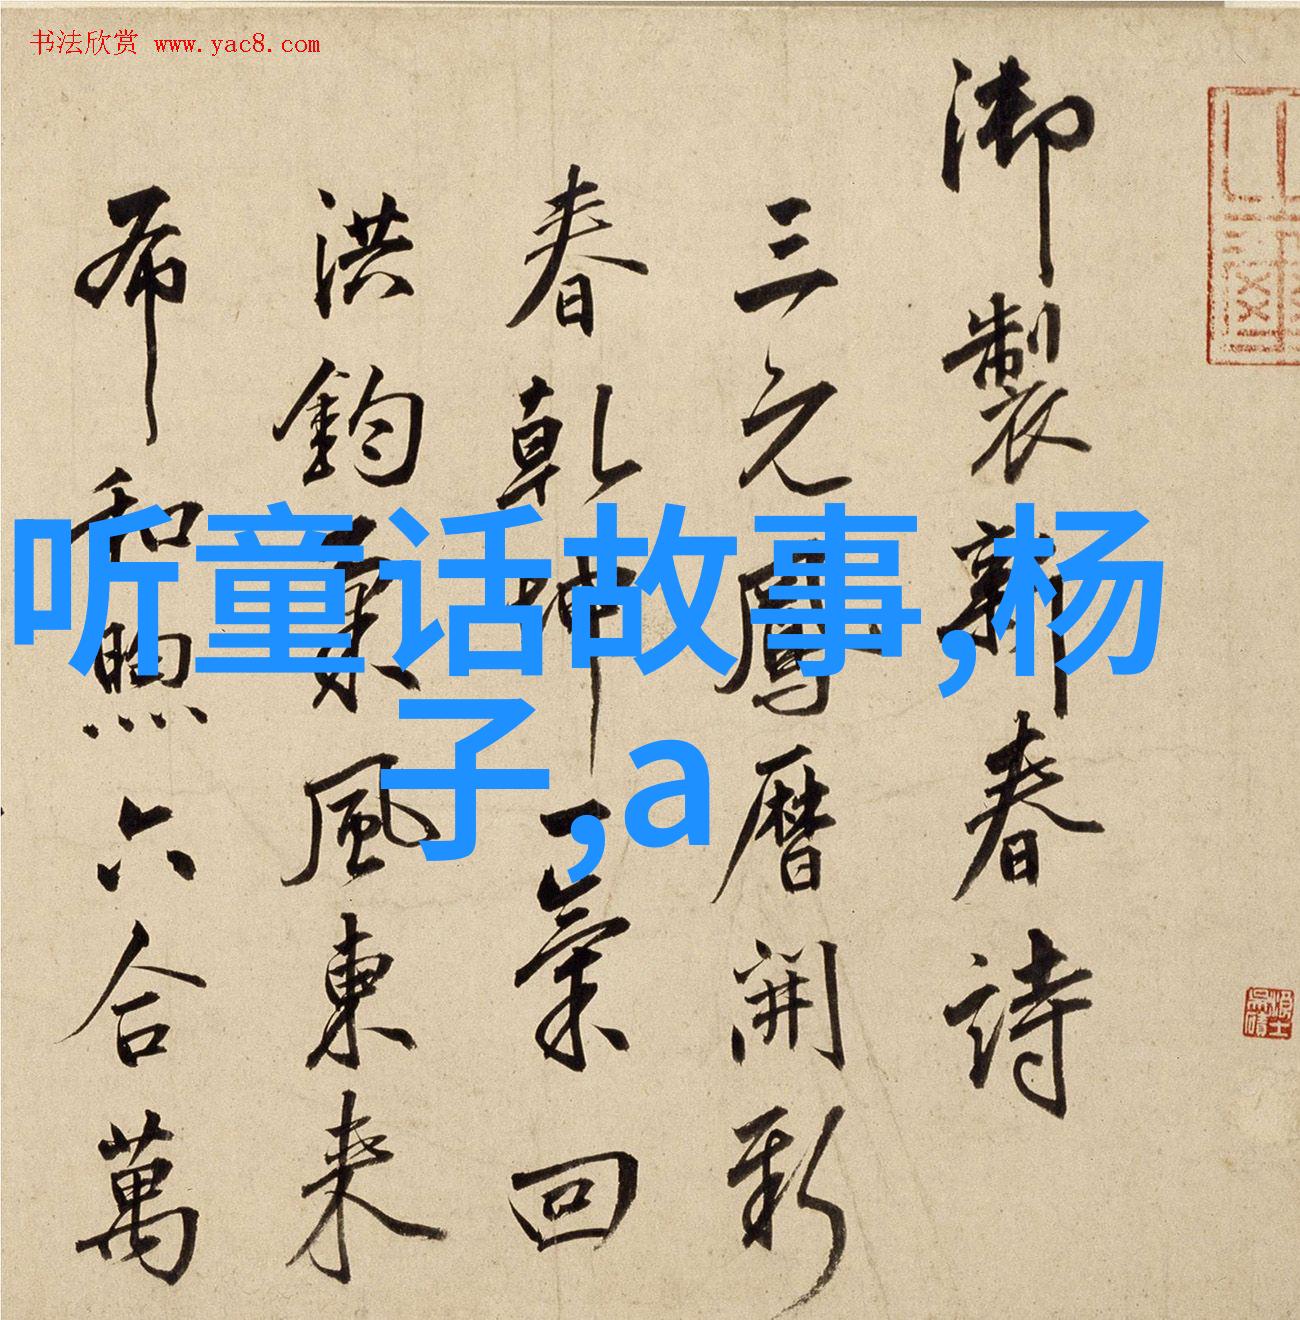 书法欣赏 www.yac8.com
御製新春詩
三元鳳曆開新
春乾坤一氣回
洪鈞東風東来
布和煦六合萬
听童话故事,杨
子,a